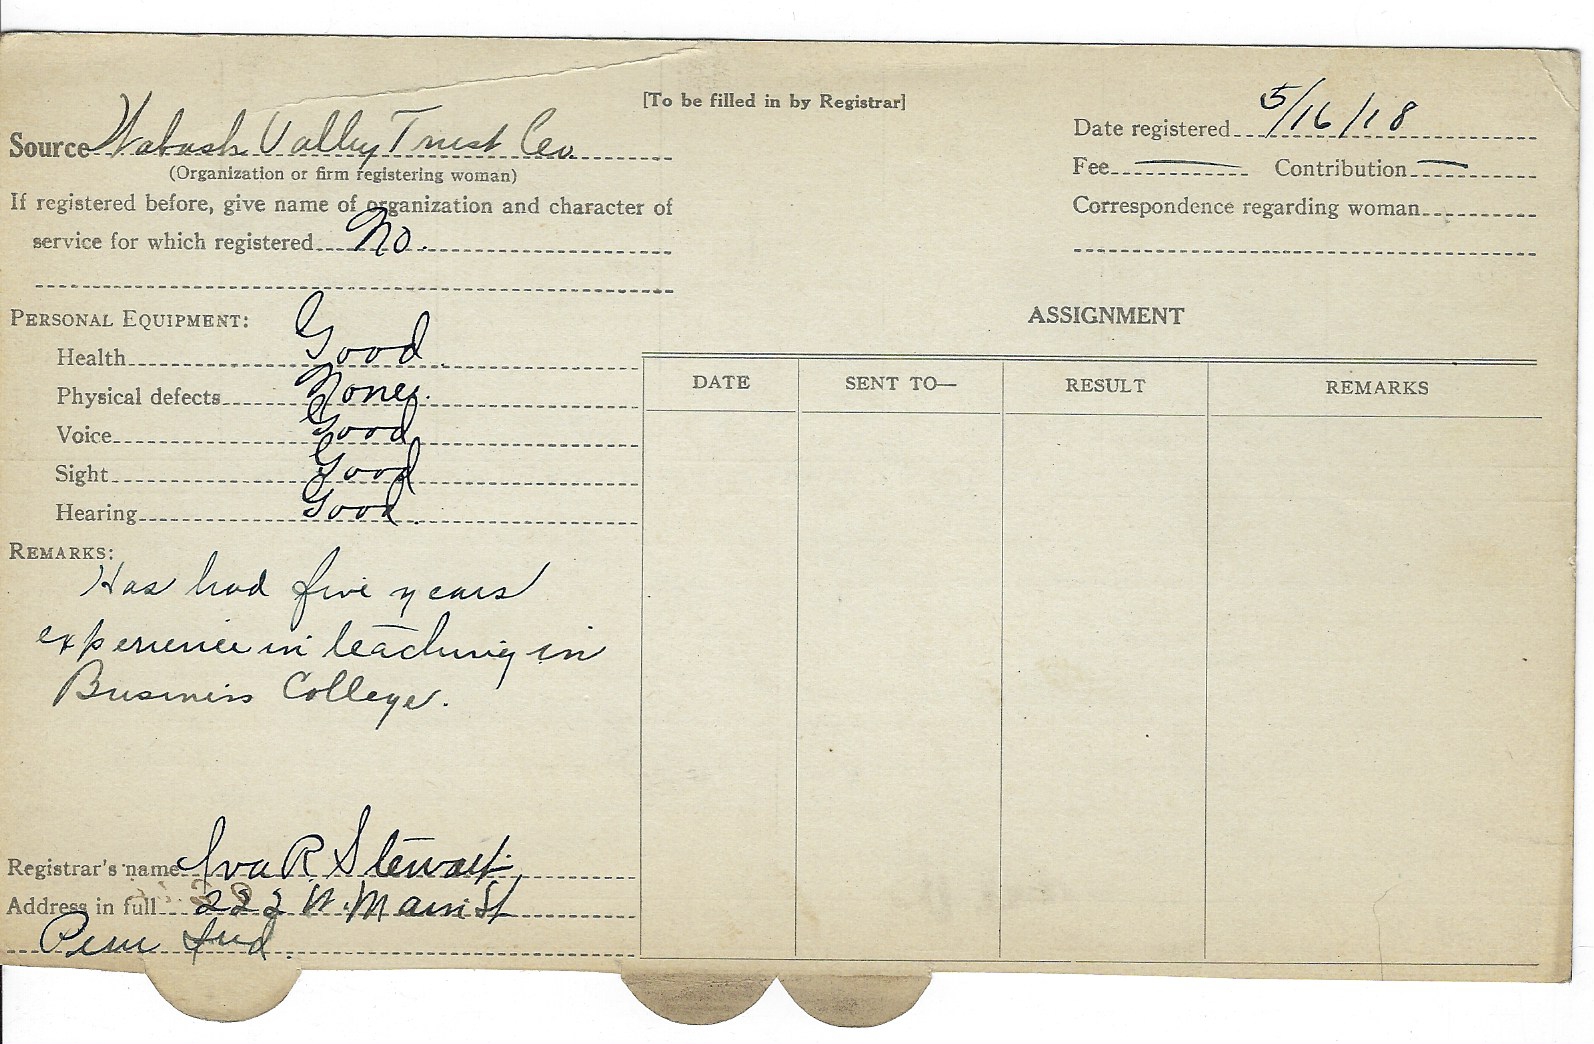 [To be filled in by Registrar]
Source Wabash Valley Trust Co.
(Organization or firm registering woman)
If registered before, give name of organization and character of
service for which registered No.
Date registered 5/16/18
Fee — Contribution —
Correspondence regarding woman
PERSONAL EQUIPMENT:
Health Good
Physical defects None.
Voice Good
Sight Good
Hearing Good.
REMARKS:
Has had five years
experience in teaching in
Business College.
Registrar's name Iva R Stewart
Address in full 222 W. Main St
Peru Ind.
ASSIGNMENT
DATE SENT TO— RESULT REMARKS